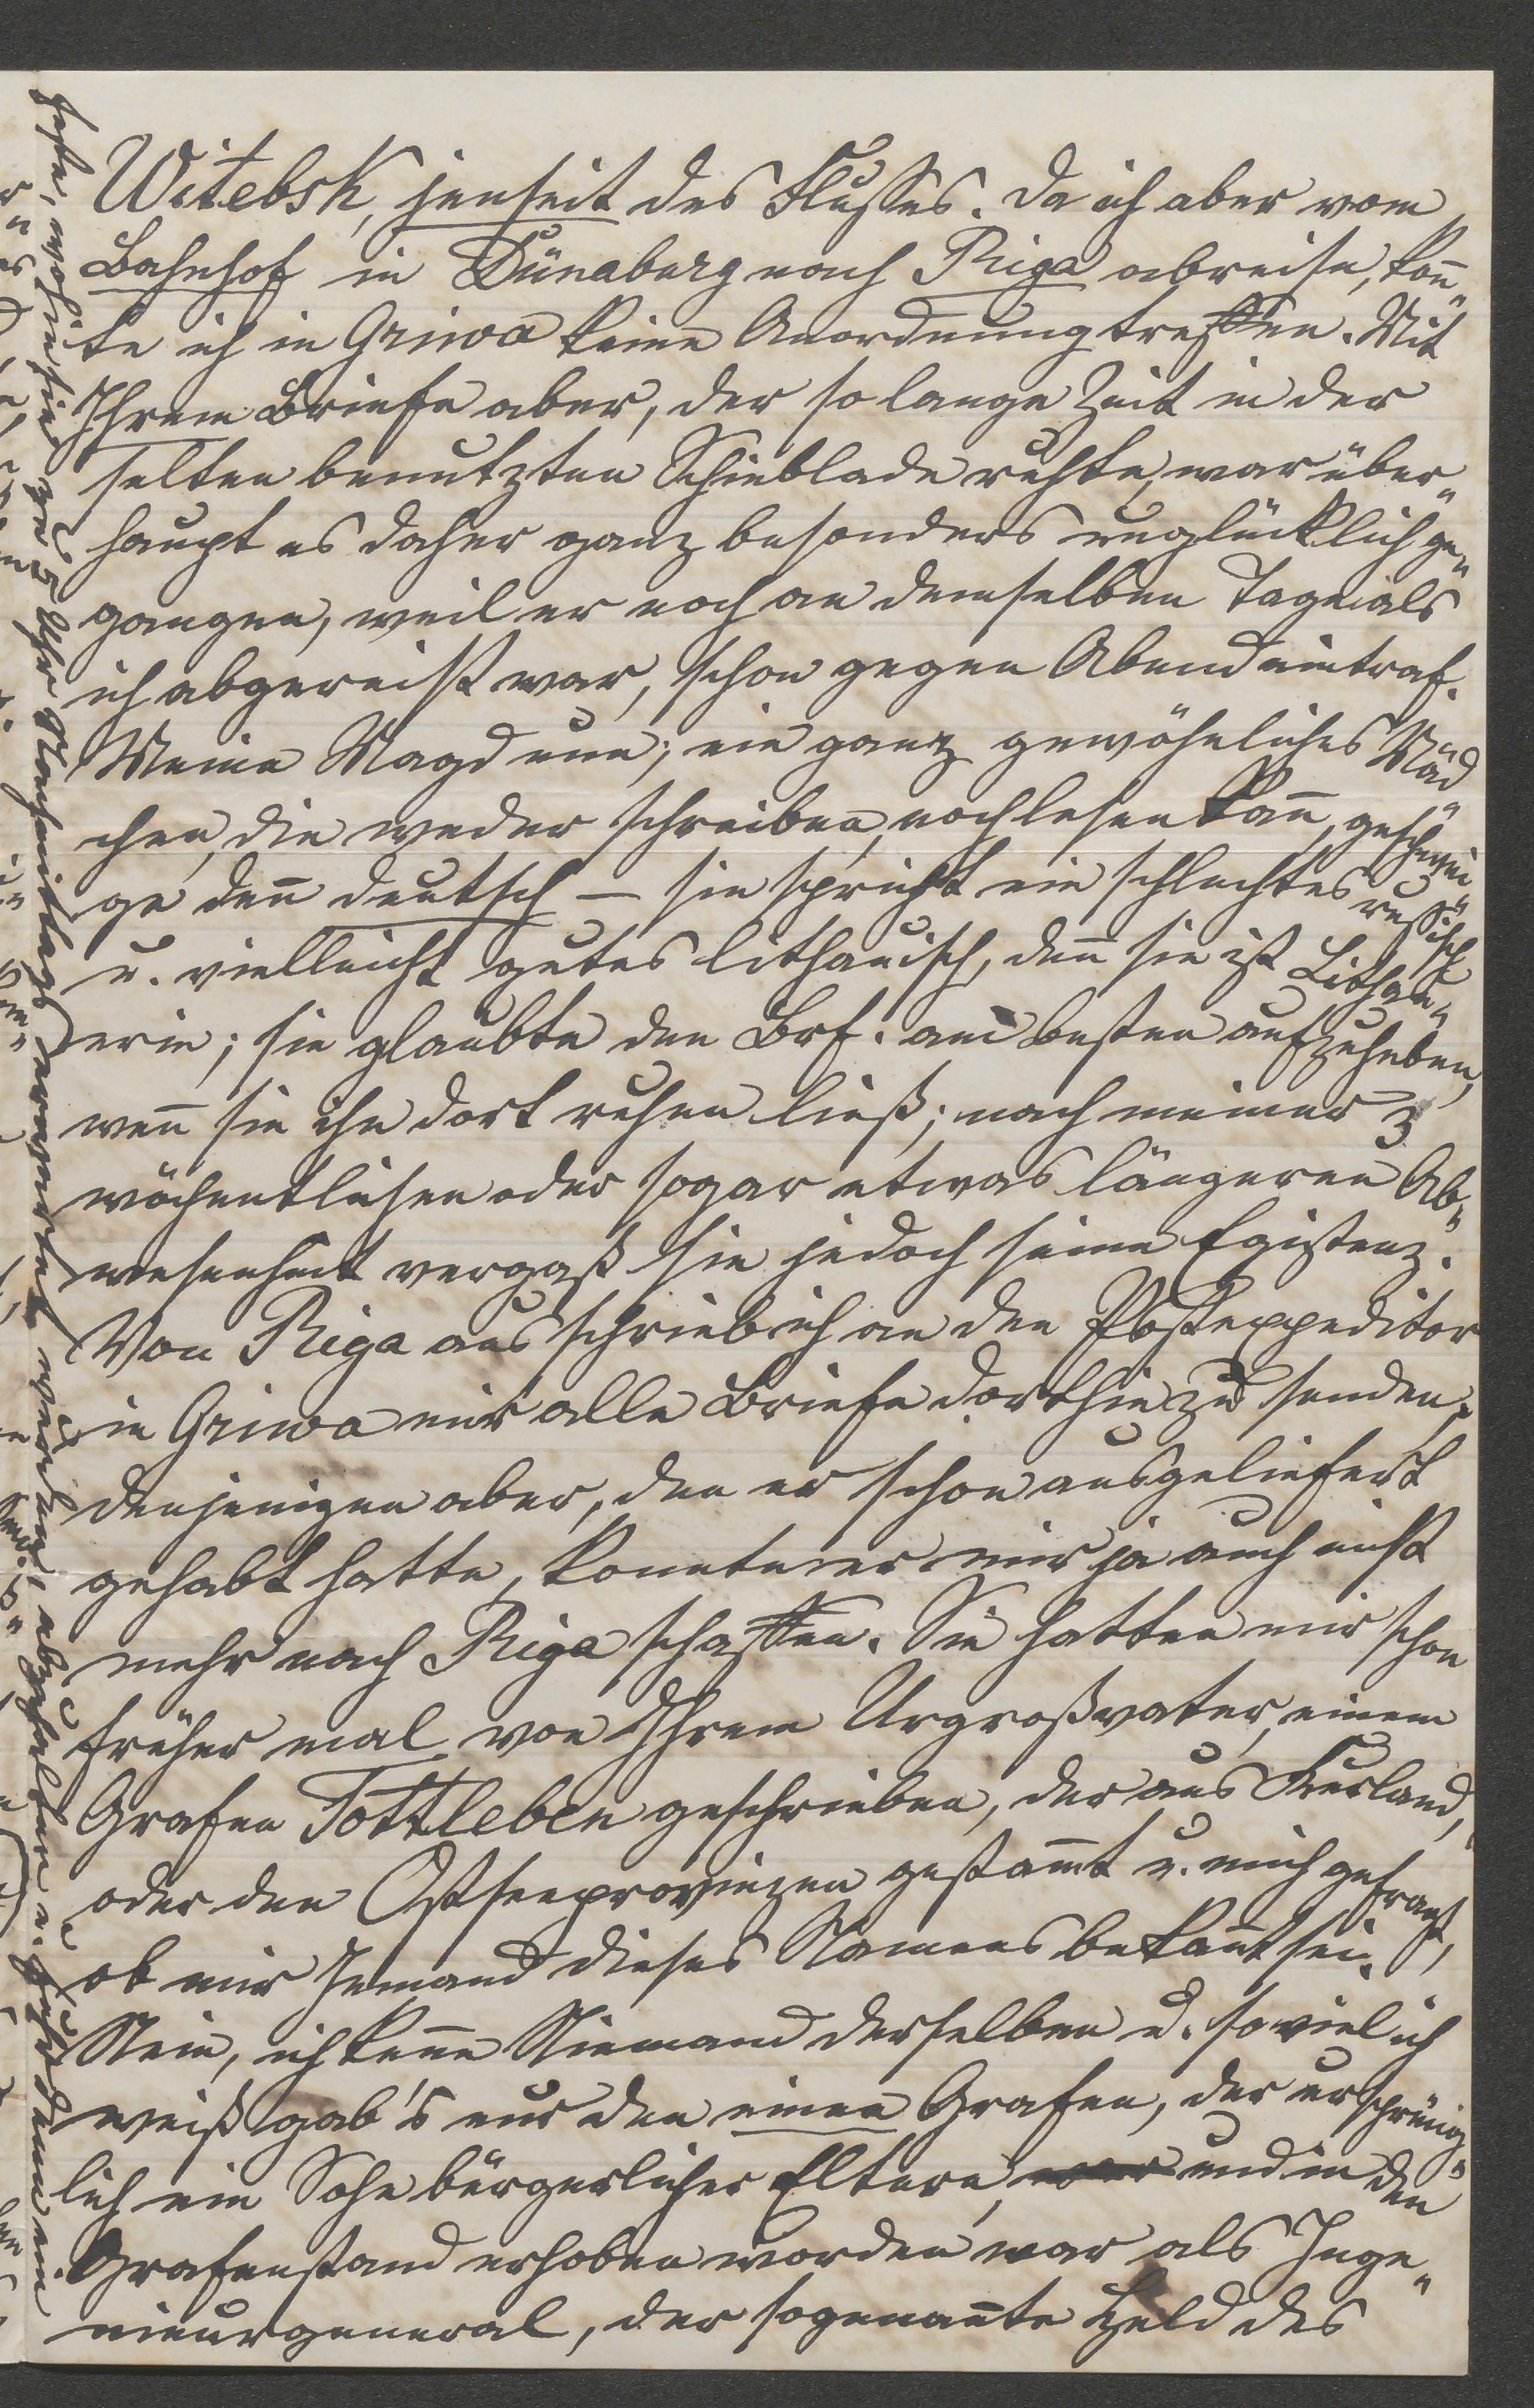 Witebsk, jenseit des Flusses. Da ich aber vom
Bahnhof in Dünaburg nach Riga abreise, kon̄„
te ich in Griwa keine Anordnung treffen. Mit
Ihrem Briefe aber, der so lange Zeit in der
selten benutzten Schieblade ruhte, war über„
haupt es daher ganz besonders unglücklich ge„
gangen, weil er noch an demselben Tage als
ich abgereist war, schon gegen Abend eintraf.
Meine Magd nun; ein ganz gewöhnliches Mäd„
chen, die weder schreiben, noch lesen kan̄, geschwei„
ge den̄ deutsch — sie spricht ein schlechtes russisch
u. vielleicht gutes lithauisch, den̄ sie ist Lithau„
erin; sie glaubte den Brf. am besten aufzuheben,
wen̄ sie ihn dort ruhen ließ; nach meiner 3
wöchentlichen oder sogar etwas längeren Ab„
wesenheit vergaß sie jedoch seine Existenz.
Von Riga aus schrieb ich an den Postexpeditor
in Griwa mir alle Briefe dorthin zu senden;
denjenigen aber, den er schon ausgeliefert
gehabt hatte, konnte er mir ja auch nicht
mehr nach Riga schaffen. Sie hatten mir schon
früher mal von Ihrem Urgroßvater, einem
Grafen Tottleben geschrieben, der aus Kurland,
oder den Ostseeprovinzen gestam̄t u. mich gefragt,
ob mir Jemand dieses Namens bekan̄t sei.
Nein, ich ken̄e Niemand derselben u. so viel ich
weiß gab's nur den einen Grafen, der ursprüng„
lich ein Sohn bürgerlicher Eltern, war und in den
Grafenstand erhoben worden war als Inge„
nieurgeneral, der sogenan̄te Held des
wohin sie zu 5 Uhr Nachmittags erwartet wurden, abzuholen u.